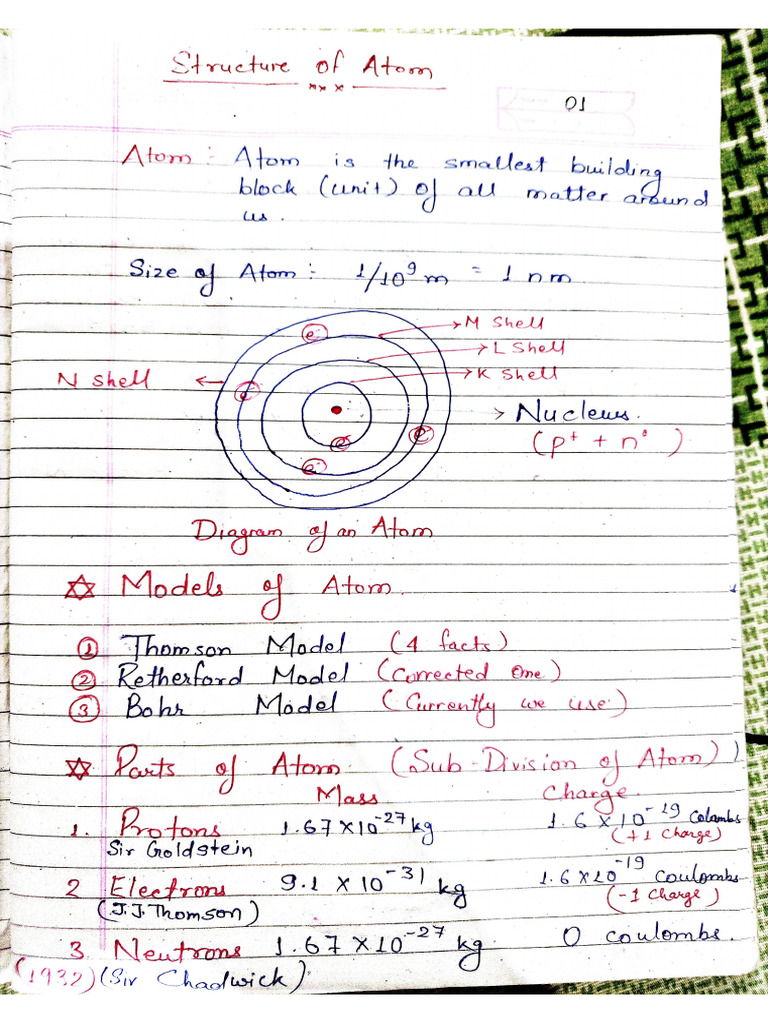 Structure of Atom
01
Atom :- Atom is the smallest building
block (unit) of all matter around
us.
Size of Atom :- 1/10⁹ m = 1 nm
M Shell
L Shell
K Shell
N Shell
Nucleus.
(p⁺ + n°)
e⁻
e⁻
e⁻
e⁻
e⁻
Diagram of an Atom
Models of Atom.
① Thomson Model (4 facts)
② Retherford Model (Corrected One)
③ Bohr Model (Currently we use)
Parts of Atom. (Sub-Division of Atom)
Mass Charge.
1. Protons 1.67 × 10⁻²⁷ kg 1.6 × 10⁻¹⁹ Colambs
Sir Goldstein (+1 Charge)
2 Electrons 9.1 × 10⁻³¹ kg 1.6×10⁻¹⁹ Coulombs
(J.J. Thomson) (-1 Charge)
3. Neutrons 1.67 × 10⁻²⁷ kg. 0 coulombs.
(1932) (Sir Chadwick)